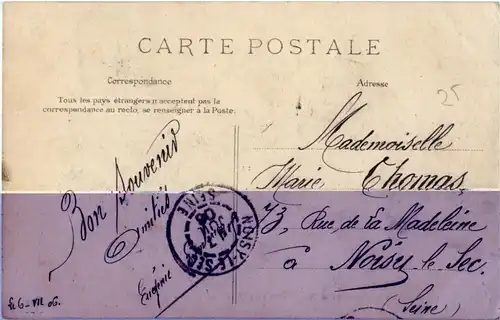 CARTE POSTALE
Correspondance
Adresse
Tous les pays étrangers n'acceptent pas la
correspondance au recto, se renseigner à la Poste.
25
Bon Souvenir
Amitiés
Eugénie
Mademoiselle
Marie Thomas,
13, Rue de la Madeleine
à Noisy le Sec.
(Seine)
NOISY-LE-SEC
SEINE
06